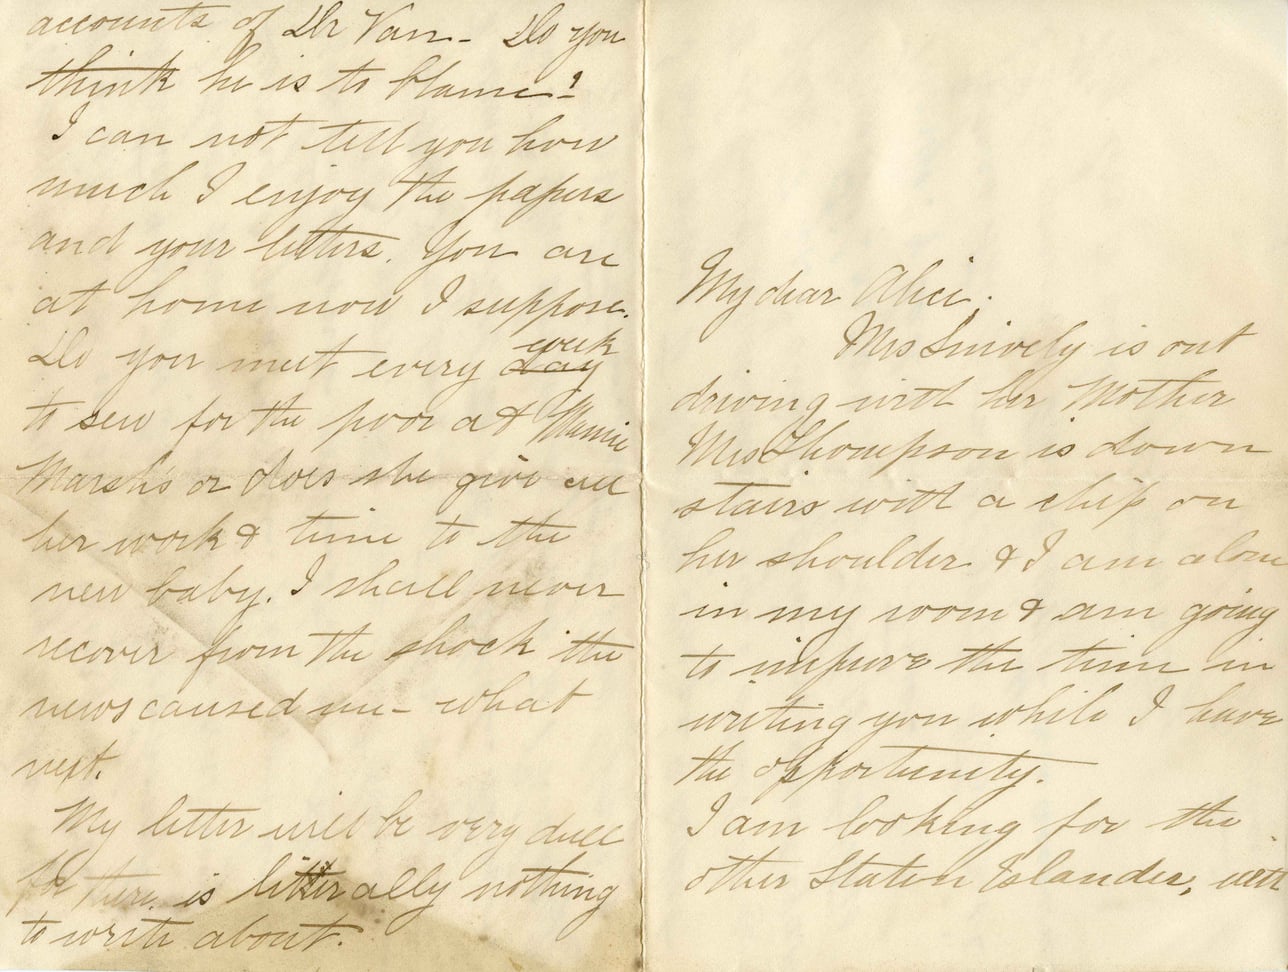 accounts of Dr Van - Do you
think he is to blame?
I can not tell you how
much I enjoy the papers
and your letters. You are
at home now I suppose.
Do you meet every day week
to sew for the poor at Mamie
Marsh's or does she give all
her work & time to the
new baby. I shall never
recover from the shock the
news caused me - what
next.
My letter will be very dull
for there is literally nothing
to write about.
My dear Alice.
Mrs Snively is out
driving with her Mother
Mrs Thompson is down
stairs with a chip on
her shoulder & I am alone
in my room & am going
to improve the time in
writing you while I have
the opportunity.
I am looking for the
other Staten Islander, with